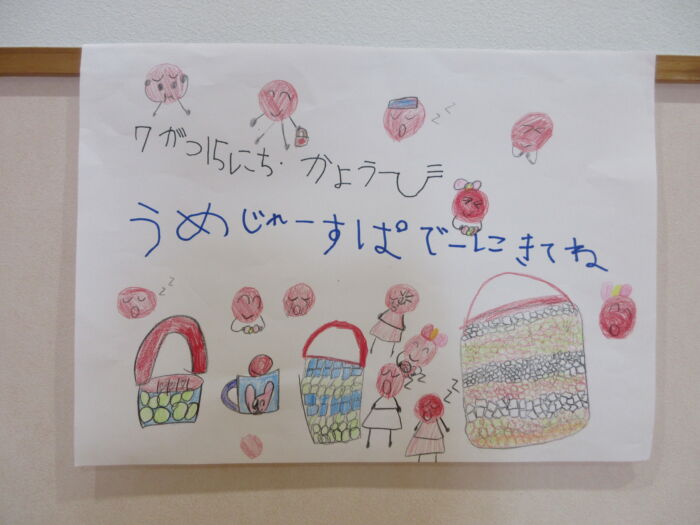 7がつ15にち・かようび
うめじれーすぱでーにきてね